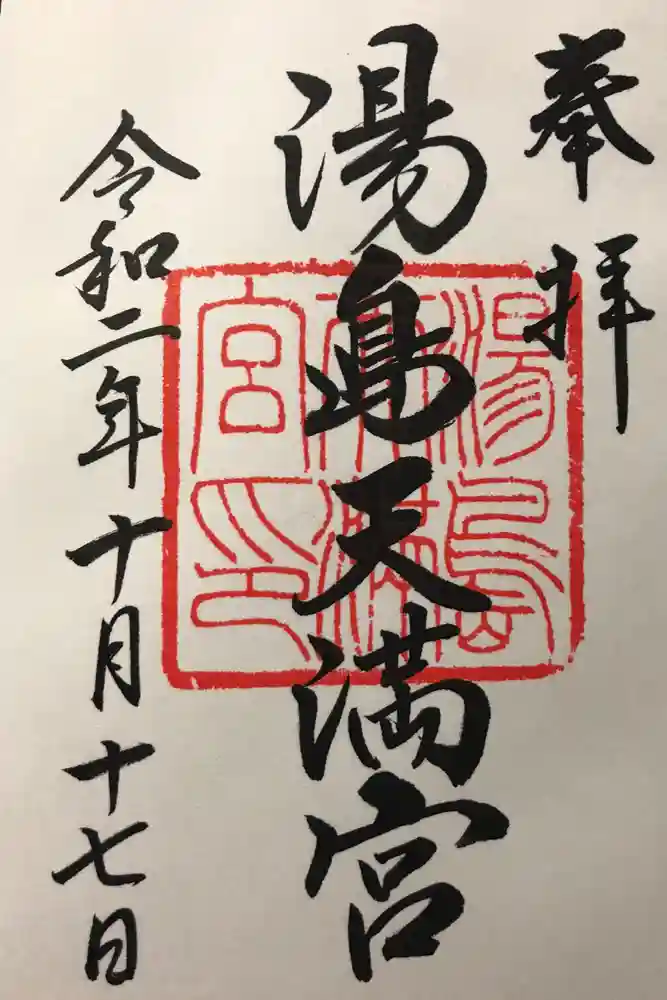 奉拝
湯島天満宮
湯島
天満
宮印
令和二年十月十七日